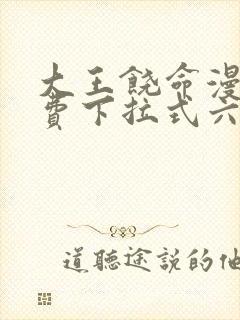 大王饶命漫
费下拉式六
道聽途説的他